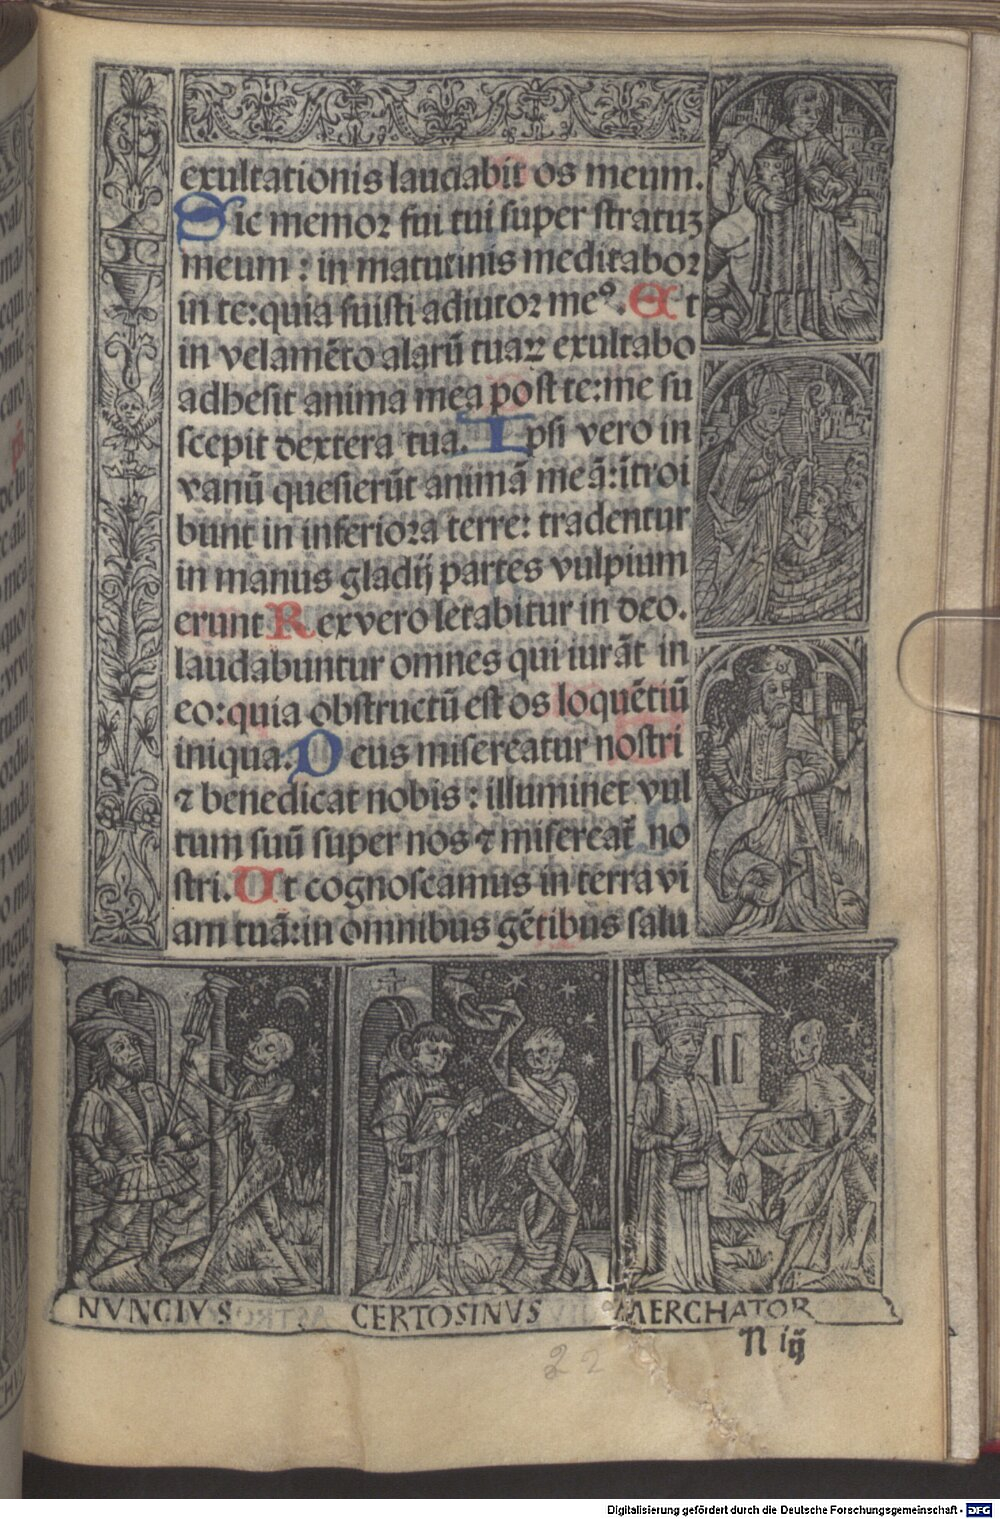 exultationis laudabit os meum.
Sic memoꝛ fui tui super stratuꝫ
meum : in matutinis meditaboꝛ
in te:quia fuisti adiutoꝛ meꝰ. Et
in velamēto alarū tuaꝝ exultabo
adhesit anima mea post te:me su
scepit dextera tua. Ipsi vero in
vanū quesierūt animā meā:ītroi
bunt in inferioꝛa terre: tradentur
in manus gladij partes vulpium
erunt Rex vero letabitur in deo.
laudabuntur omnes qui iurāt in
eo:quia obstructū est os loquētiū
iniqua. Deus misereatur nostri
⁊ benedicat nobis : illuminet vul
tum suū super nos ⁊ misereat̄ no
stri. Ut cognoscamus in terra vi
am tuā:in omnibus gētibus salu
NVNCIVS CERTOSINVS MERCHATOR
N iij
22
Digitalisierung gefördert durch die Deutsche Forschungsgemeinschaft - DFG